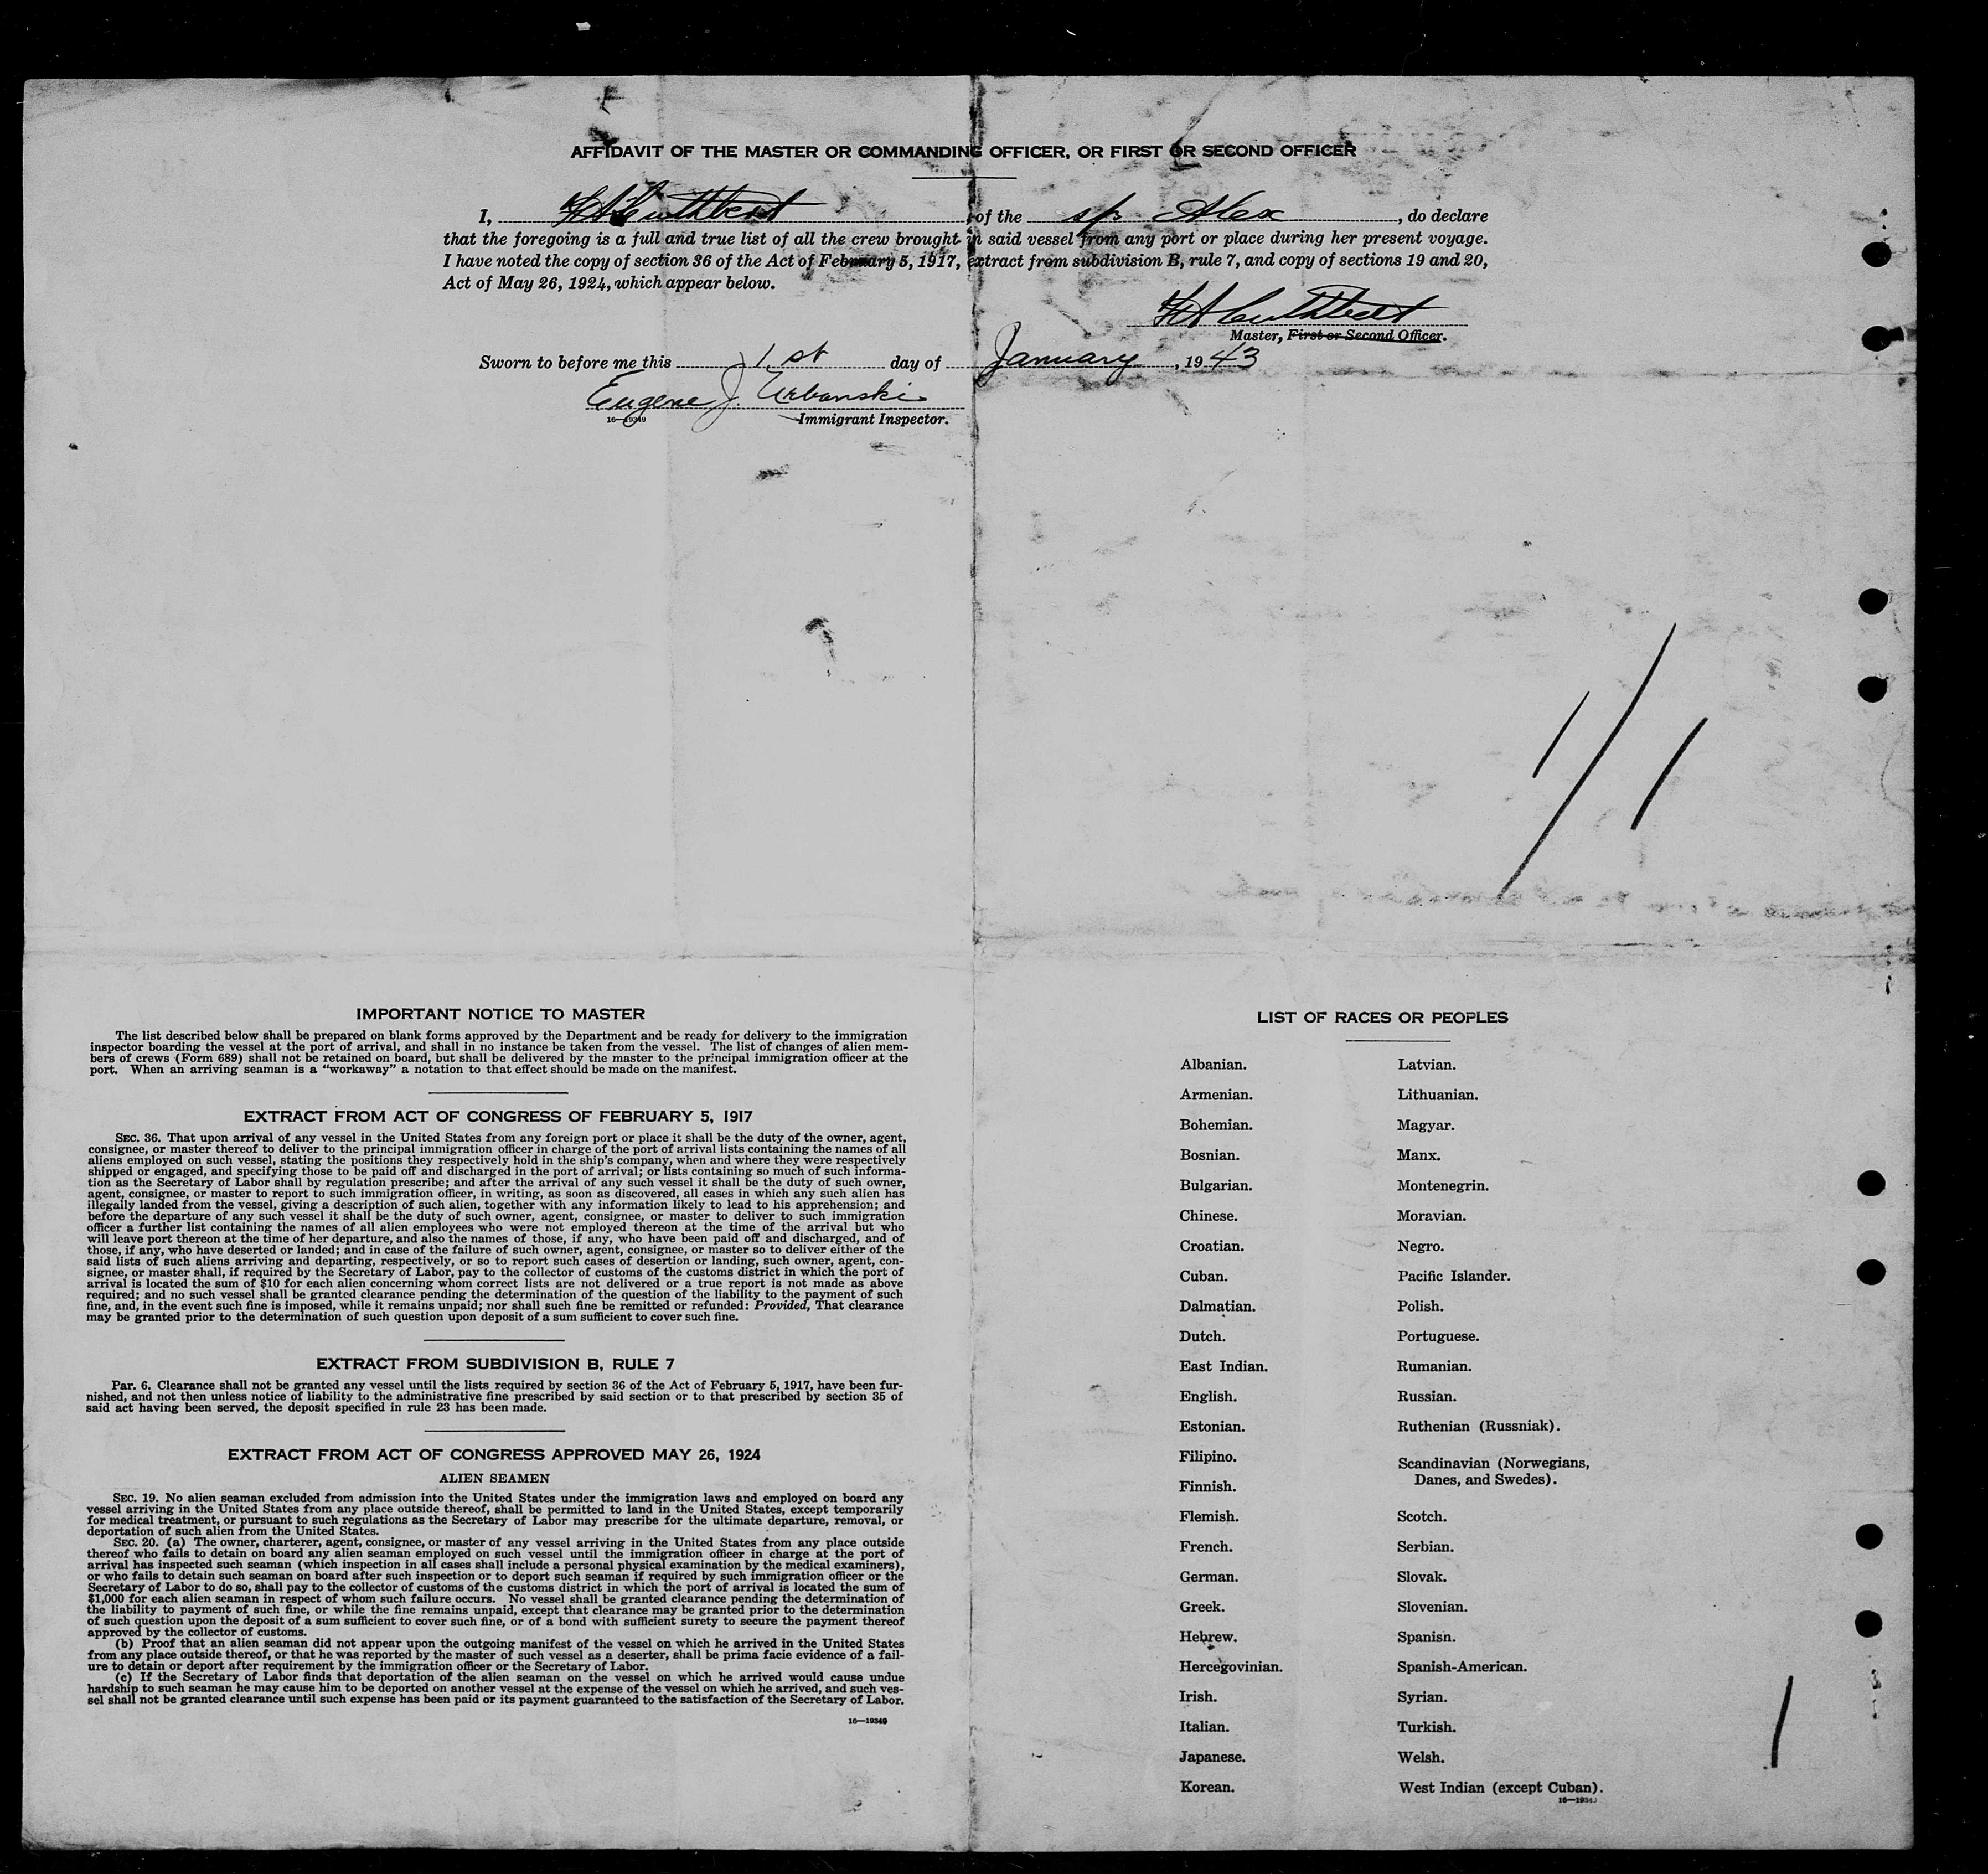 AFFIDAVIT OF THE MASTER OR COMMANDING OFFICER, OR FIRST OR SECOND OFFICER
I, Cuthbert of the Alex, do declare
that the foregoing is a full and true list of all the crew brought in said vessel from any port or place during her present voyage.
I have noted the copy of section 36 of the Act of February 5, 1917, extract from subdivision B, rule 7, and copy of sections 19 and 20,
Act of May 26, 1924, which appear below.
Cuthbert
Master, First or Second Officer.
Sworn to before me this 1st day of January, 1943
Eugene J. Urbanski
16—19349 Immigrant Inspector.
1/1
IMPORTANT NOTICE TO MASTER
The list described below shall be prepared on blank forms approved by the Department and be ready for delivery to the immigration
inspector boarding the vessel at the port of arrival, and shall in no instance be taken from the vessel. The list of changes of alien mem-
bers of crews (Form 689) shall not be retained on board, but shall be delivered by the master to the principal immigration officer at the
port. When an arriving seaman is a "workaway" a notation to that effect should be made on the manifest.
EXTRACT FROM ACT OF CONGRESS OF FEBRUARY 5, 1917
SEC. 36. That upon arrival of any vessel in the United States from any foreign port or place it shall be the duty of the owner, agent,
consignee, or master thereof to deliver to the principal immigration officer in charge of the port of arrival lists containing the names of all
aliens employed on such vessel, stating the positions they respectively hold in the ship's company, when and where they were respectively
shipped or engaged, and specifying those to be paid off and discharged in the port of arrival; or lists containing so much of such informa-
tion as the Secretary of Labor shall by regulation prescribe; and after the arrival of any such vessel it shall be the duty of such owner,
agent, consignee, or master to report to such immigration officer, in writing, as soon as discovered, all cases in which any such alien has
illegally landed from the vessel, giving a description of such alien, together with any information likely to lead to his apprehension; and
before the departure of any such vessel it shall be the duty of such owner, agent, consignee, or master to deliver to such immigration
officer a further list containing the names of all alien employees who were not employed thereon at the time of the arrival but who
will leave port thereon at the time of her departure, and also the names of those, if any, who have been paid off and discharged, and of
those, if any, who have deserted or landed; and in case of the failure of such owner, agent, consignee, or master so to deliver either of the
said lists of such aliens arriving and departing, respectively, or so to report such cases of desertion or landing, such owner, agent, con-
signee, or master shall, if required by the Secretary of Labor, pay to the collector of customs of the customs district in which the port of
arrival is located the sum of $10 for each alien concerning whom correct lists are not delivered or a true report is not made as above
required; and no such vessel shall be granted clearance pending the determination of the question of the liability to the payment of such
fine, and, in the event such fine is imposed, while it remains unpaid; nor shall such fine be remitted or refunded: Provided, That clearance
may be granted prior to the determination of such question upon deposit of a sum sufficient to cover such fine.
EXTRACT FROM SUBDIVISION B, RULE 7
Par. 6. Clearance shall not be granted any vessel until the lists required by section 36 of the Act of February 5, 1917, have been fur-
nished, and not then unless notice of liability to the administrative fine prescribed by said section or to that prescribed by section 35 of
said act having been served, the deposit specified in rule 23 has been made.
EXTRACT FROM ACT OF CONGRESS APPROVED MAY 26, 1924
ALIEN SEAMEN
SEC. 19. No alien seaman excluded from admission into the United States under the immigration laws and employed on board any
vessel arriving in the United States from any place outside thereof, shall be permitted to land in the United States, except temporarily
for medical treatment, or pursuant to such regulations as the Secretary of Labor may prescribe for the ultimate departure, removal, or
deportation of such alien from the United States.
SEC. 20. (a) The owner, charterer, agent, consignee, or master of any vessel arriving in the United States from any place outside
thereof who fails to detain on board any alien seaman employed on such vessel until the immigration officer in charge at the port of
arrival has inspected such seaman (which inspection in all cases shall include a personal physical examination by the medical examiners),
or who fails to detain such seaman on board after such inspection or to deport such seaman if required by such immigration officer or the
Secretary of Labor to do so, shall pay to the collector of customs of the customs district in which the port of arrival is located the sum of
$1,000 for each alien seaman in respect of whom such failure occurs. No vessel shall be granted clearance pending the determination of
the liability to payment of such fine, or while the fine remains unpaid, except that clearance may be granted prior to the determination
of such question upon the deposit of a sum sufficient to cover such fine, or of a bond with sufficient surety to secure the payment thereof
approved by the collector of customs.
(b) Proof that an alien seaman did not appear upon the outgoing manifest of the vessel on which he arrived in the United States
from any place outside thereof, or that he was reported by the master of such vessel as a deserter, shall be prima facie evidence of a fail-
ure to detain or deport after requirement by the immigration officer or the Secretary of Labor.
(c) If the Secretary of Labor finds that deportation of the alien seaman on the vessel on which he arrived would cause undue
hardship to such seaman he may cause him to be deported on another vessel at the expense of the vessel on which he arrived, and such ves-
sel shall not be granted clearance until such expense has been paid or its payment guaranteed to the satisfaction of the Secretary of Labor.
16—19349
LIST OF RACES OR PEOPLES
Albanian.
Armenian.
Bohemian.
Bosnian.
Bulgarian.
Chinese.
Croatian.
Cuban.
Dalmatian.
Dutch.
East Indian.
English.
Estonian.
Filipino.
Finnish.
Flemish.
French.
German.
Greek.
Hebrew.
Hercegovinian.
Irish.
Italian.
Japanese.
Korean.
Latvian.
Lithuanian.
Magyar.
Manx.
Montenegrin.
Moravian.
Negro.
Pacific Islander.
Polish.
Portuguese.
Rumanian.
Russian.
Ruthenian (Russniak).
Scandinavian (Norwegians,
Danes, and Swedes).
Scotch.
Serbian.
Slovak.
Slovenian.
Spanish.
Spanish-American.
Syrian.
Turkish.
Welsh.
West Indian (except Cuban).